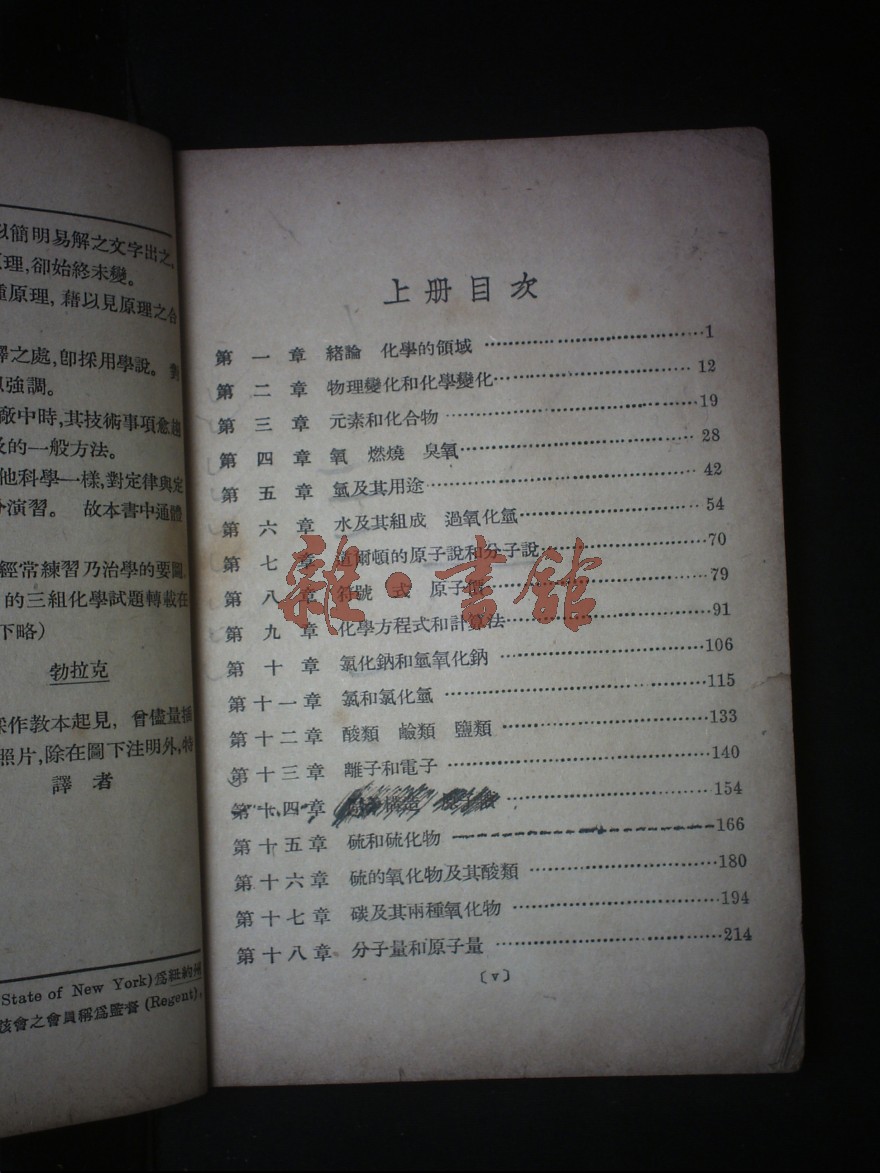 以簡明易解之文字出之,
理,卻始終未變。
重原理, 藉以見原理之合
之處,卽採用學說。 對
強調。
廠中時,其技術事項愈越
的一般方法。
他科學一樣,對定律與定
演習。 故本書中通體
經常練習乃治學的要圖,
的三組化學試題轉載在
下略)
勃拉克
作教本起見, 曾儘量插
照片,除在圖下注明外,特
譯 者
State of New York)爲紐約州
該會之會員稱爲監督(Regent),
上册目次
第一章 緒論 化學的領域 ………………1
第二章 物理變化和化學變化………………12
第三章 元素和化合物………………19
第四章 氧 燃燒 臭氧………………28
第五章 氫及其用途………………42
第六章 水及其組成 過氧化氫………………54
第七章 道爾頓的原子說和分子說………………70
第八章 符號 式 原子價………………79
第九章 化學方程式和計算法………………91
第十章 氯化鈉和氫氧化鈉………………106
第十一章 氯和氯化氫………………115
第十二章 酸類 鹼類 鹽類………………133
第十三章 離子和電子………………140
第十四章 ………………154
第十五章 硫和硫化物………………166
第十六章 硫的氧化物及其酸類………………180
第十七章 碳及其兩種氧化物………………194
第十八章 分子量和原子量………………214
〔v〕
雜·書館